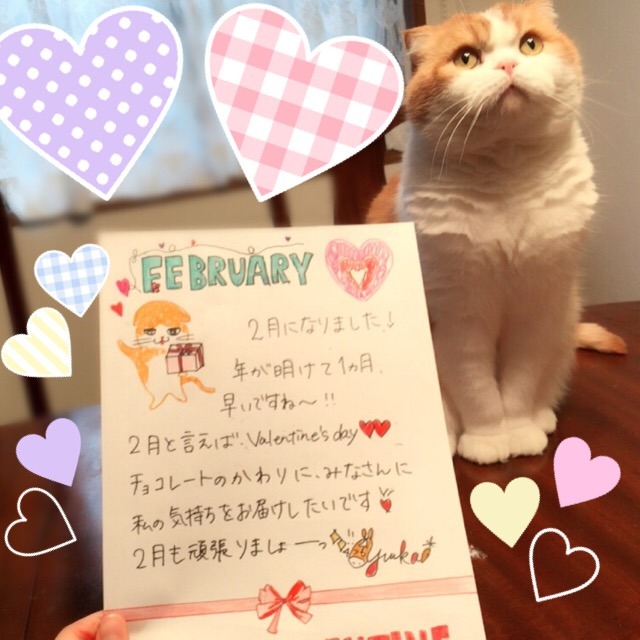 FEBRUARY
2月になりました♩
年が明けて1ヵ月、
早いですね〜!!
2月と言えば、Valentine's day♥♥
チョコレートのかわりに、みなさんに
私の気持ちをお届けしたいです
2月も頑張りましょーっ